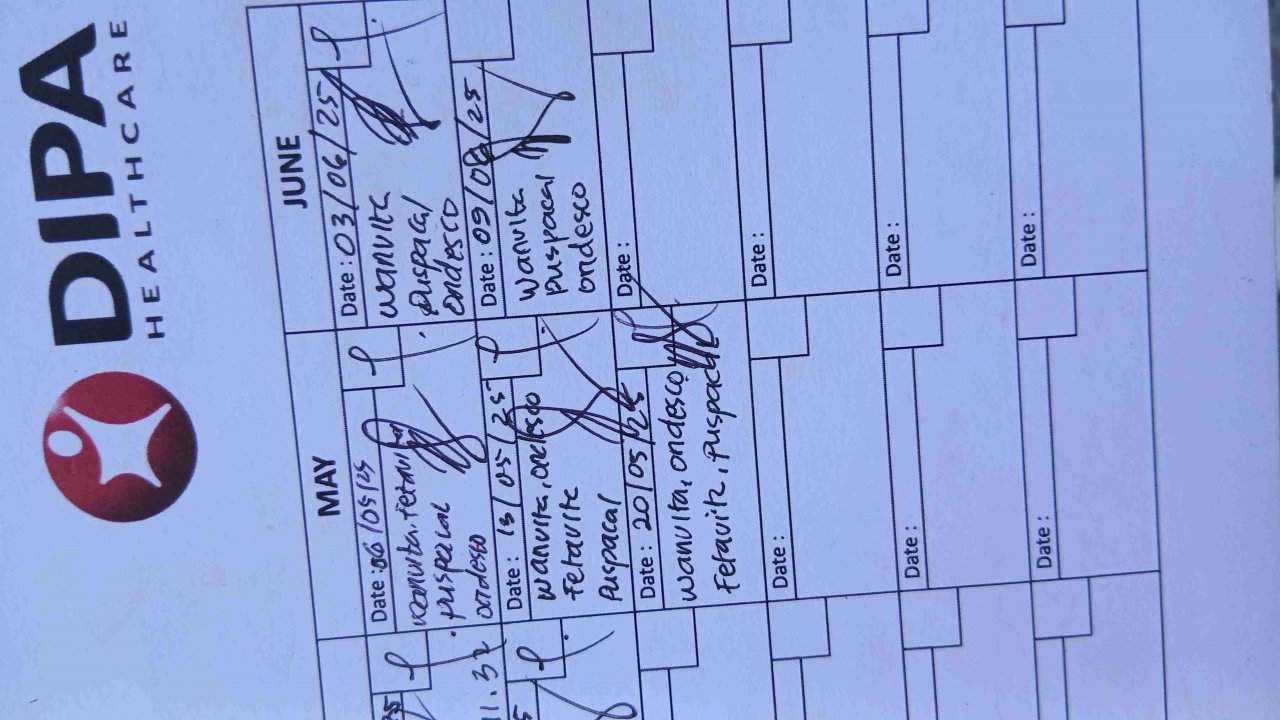 DIPA
HEALTHCARE
MAY
JUNE
Date : 06/05/25
wanvita, fetavite
puspacal
ondesco
Date : 03/06/25
wanvita
puspacal
ondesco
11.32
Date : 13/05/25
wanvita, ondesco
Fetavite
puspacal
Date : 09/06/25
wanvita
puspacal
ondesco
Date : 20/05/25
wanvita, ondesco
Fetavite, puspacal
Date :
Date :
Date :
Date :
Date :
Date :
Date :